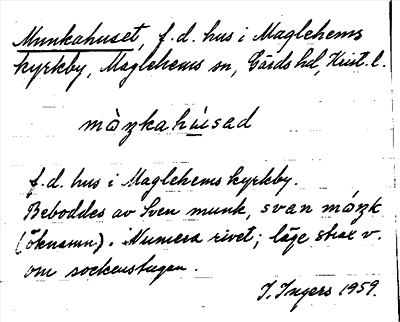 Munkahuset, f.d. hus i Maglehems
kyrkby, Maglehems sn, Gärds hd, Krist. l.
mà̱ŋkahùsad
f.d. hus i Maglehems kyrkby.
Beboddes av Sven munk, svan máŋk
(öknamn). Numera rivet; låge strax v.
om sockenstugan.
I. Ingers 1959.